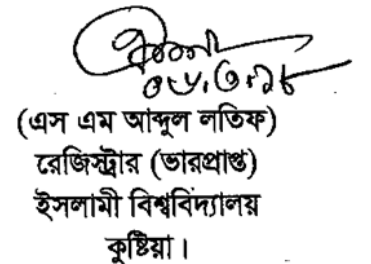 (এস এম আব্দুল লতিফ)
রেজিস্ট্রার (ভারপ্রাপ্ত)
ইসলামী বিশ্ববিদ্যালয়
কুষ্টিয়া।